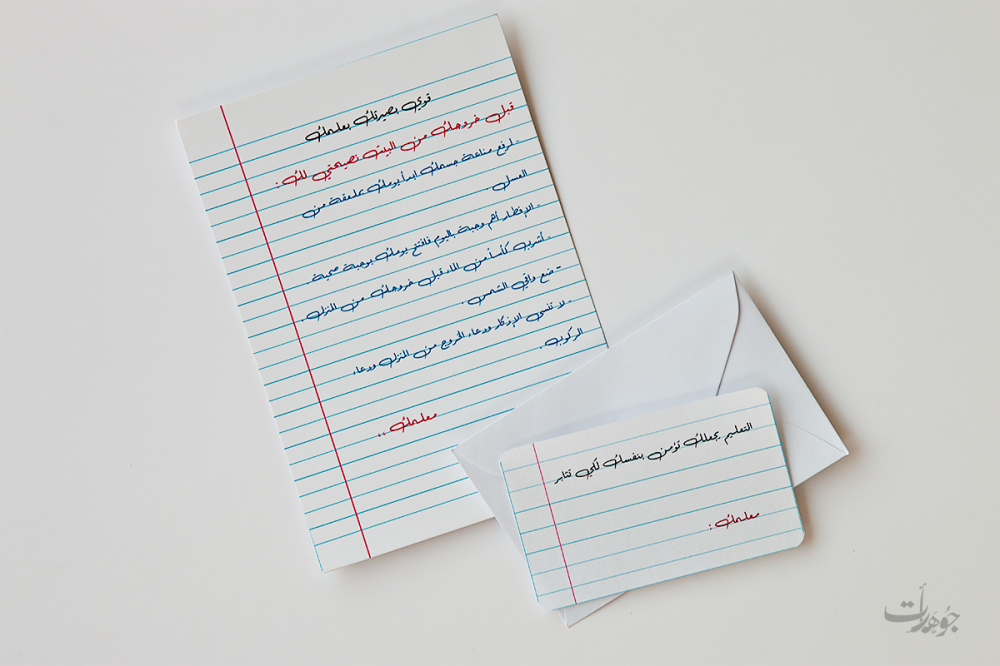 قوي بصيرتك بعلمك
قبل خروجك من البيت نصيحتي لك :
- لرفع مناعة جسمك ابدأ يومك بملعقة من
العسل .
- الإفطار أهم وجبة باليوم فافتتح يومك بوجبة صحية .
- أشرب كأساً من الماء قبل خروجك من المنزل .
- ضع واقي الشمس .
- لا تنسى الإذكار ودعاء الخروج من المنزل ودعاء
الركوب .
معلمك ..
التعليم يجعلك تؤمن بنفسك لكي تثابر
معلمك :
جوهرات